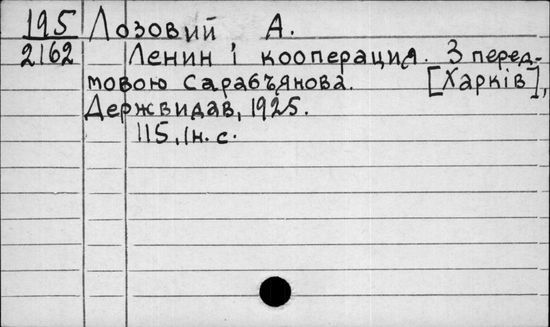 195 Лозовий А.
2162 Ленин і кооперация. З перед-
мовою Сарабъянова. [Харків],
Держвидав, 1925.
115, 1н. с.